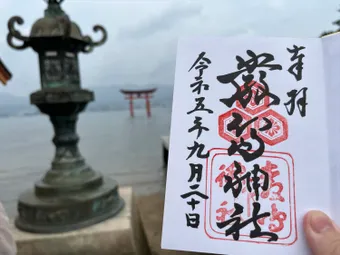 奉拝
嚴島神社
令和五年九月二十日
嚴島
神社